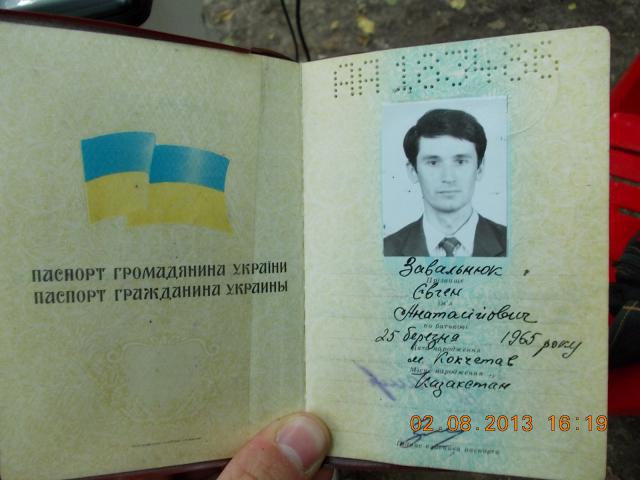 ПАСПОРТ ГРОМАДЯНИНА УКРАЇНИ
ПАСПОРТ ГРАЖДАНИНА УКРАИНЫ
Завальнюк
Прізвище
Євген
Ім'я
Анатолійович
по батькові
25 березня 1965 року
Дата народження
м. Кокчетав
Місце народження
Казахстан
02.08.2013 16:19
Підпис власника паспорта